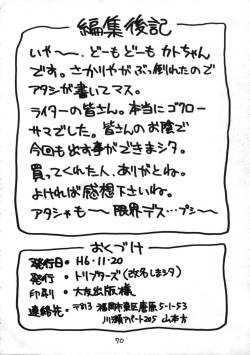 編集後記
いや〜〜、どーもどーもカトちゃん
です。さかりやがぶっ倒れたので
アタシが書いてマス。
ライターの皆さん。本当にゴクロー
サマでした。皆さんのお陰で
今回も出す事ができまシタ。
買ってくれた人、ありがとね。
よければ感想下さいね。
アタシャも〜〜限界デス…プシ〜
おくづけ
発行日・H6・11・20
発行・トリプターズ(改名しまシタ)
印刷・大友出版様
連絡先・〒813 福岡市東区唐原5-1-53
川瀬アパート205 山本方
70